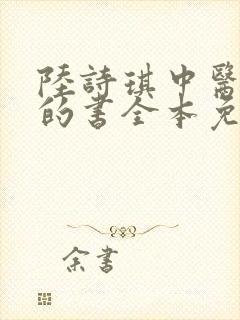 陸詩琪中醫
的書全本免
余書